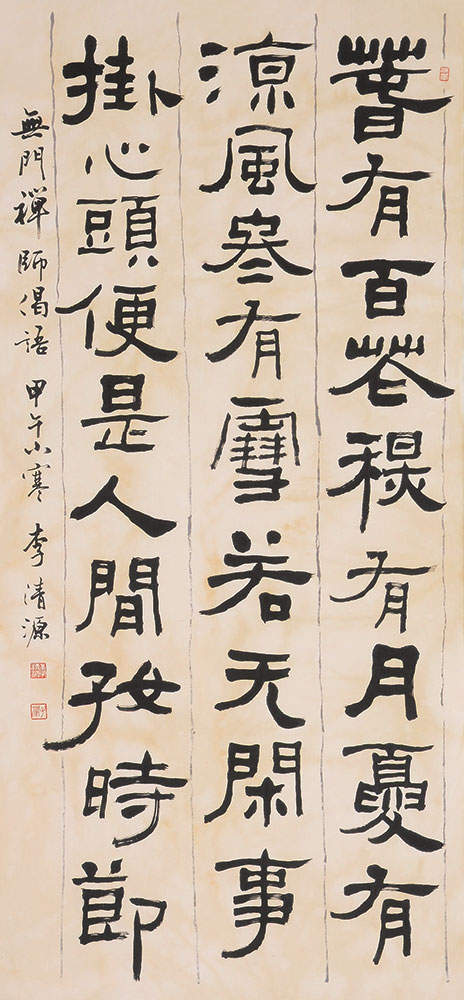 春有百花秋有月夏有
涼風冬有雪若无閑事
掛心頭便是人間好時節
無門禪師偈語 甲午小寒 李清源